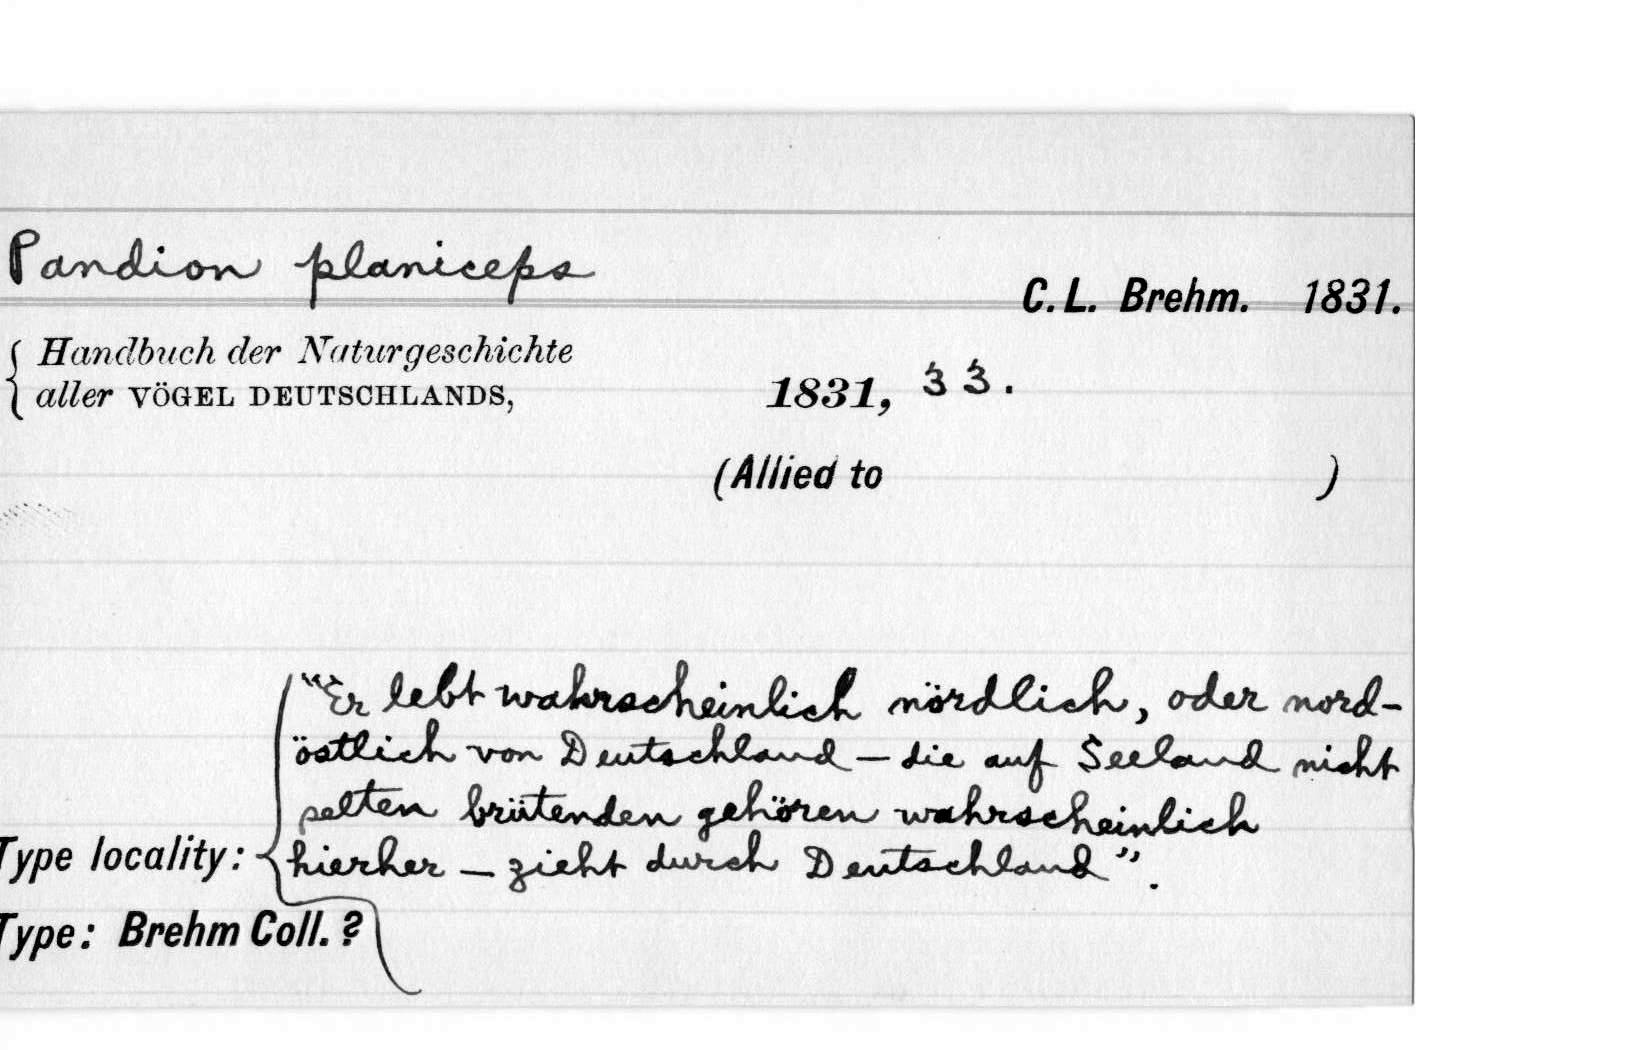 Pandion planiceps
C. L. Brehm. 1831.
Handbuch der Naturgeschichte
aller VÖGEL DEUTSCHLANDS,
1831, 33.
(Allied to )
"Er lebt wahrscheinlich nördlich, oder nord-
östlich von Deutschland – die auf Seeland nicht
selten brütenden gehören wahrscheinlich
Type locality: hierher – zieht durch Deutschland".
Type: Brehm Coll. ?